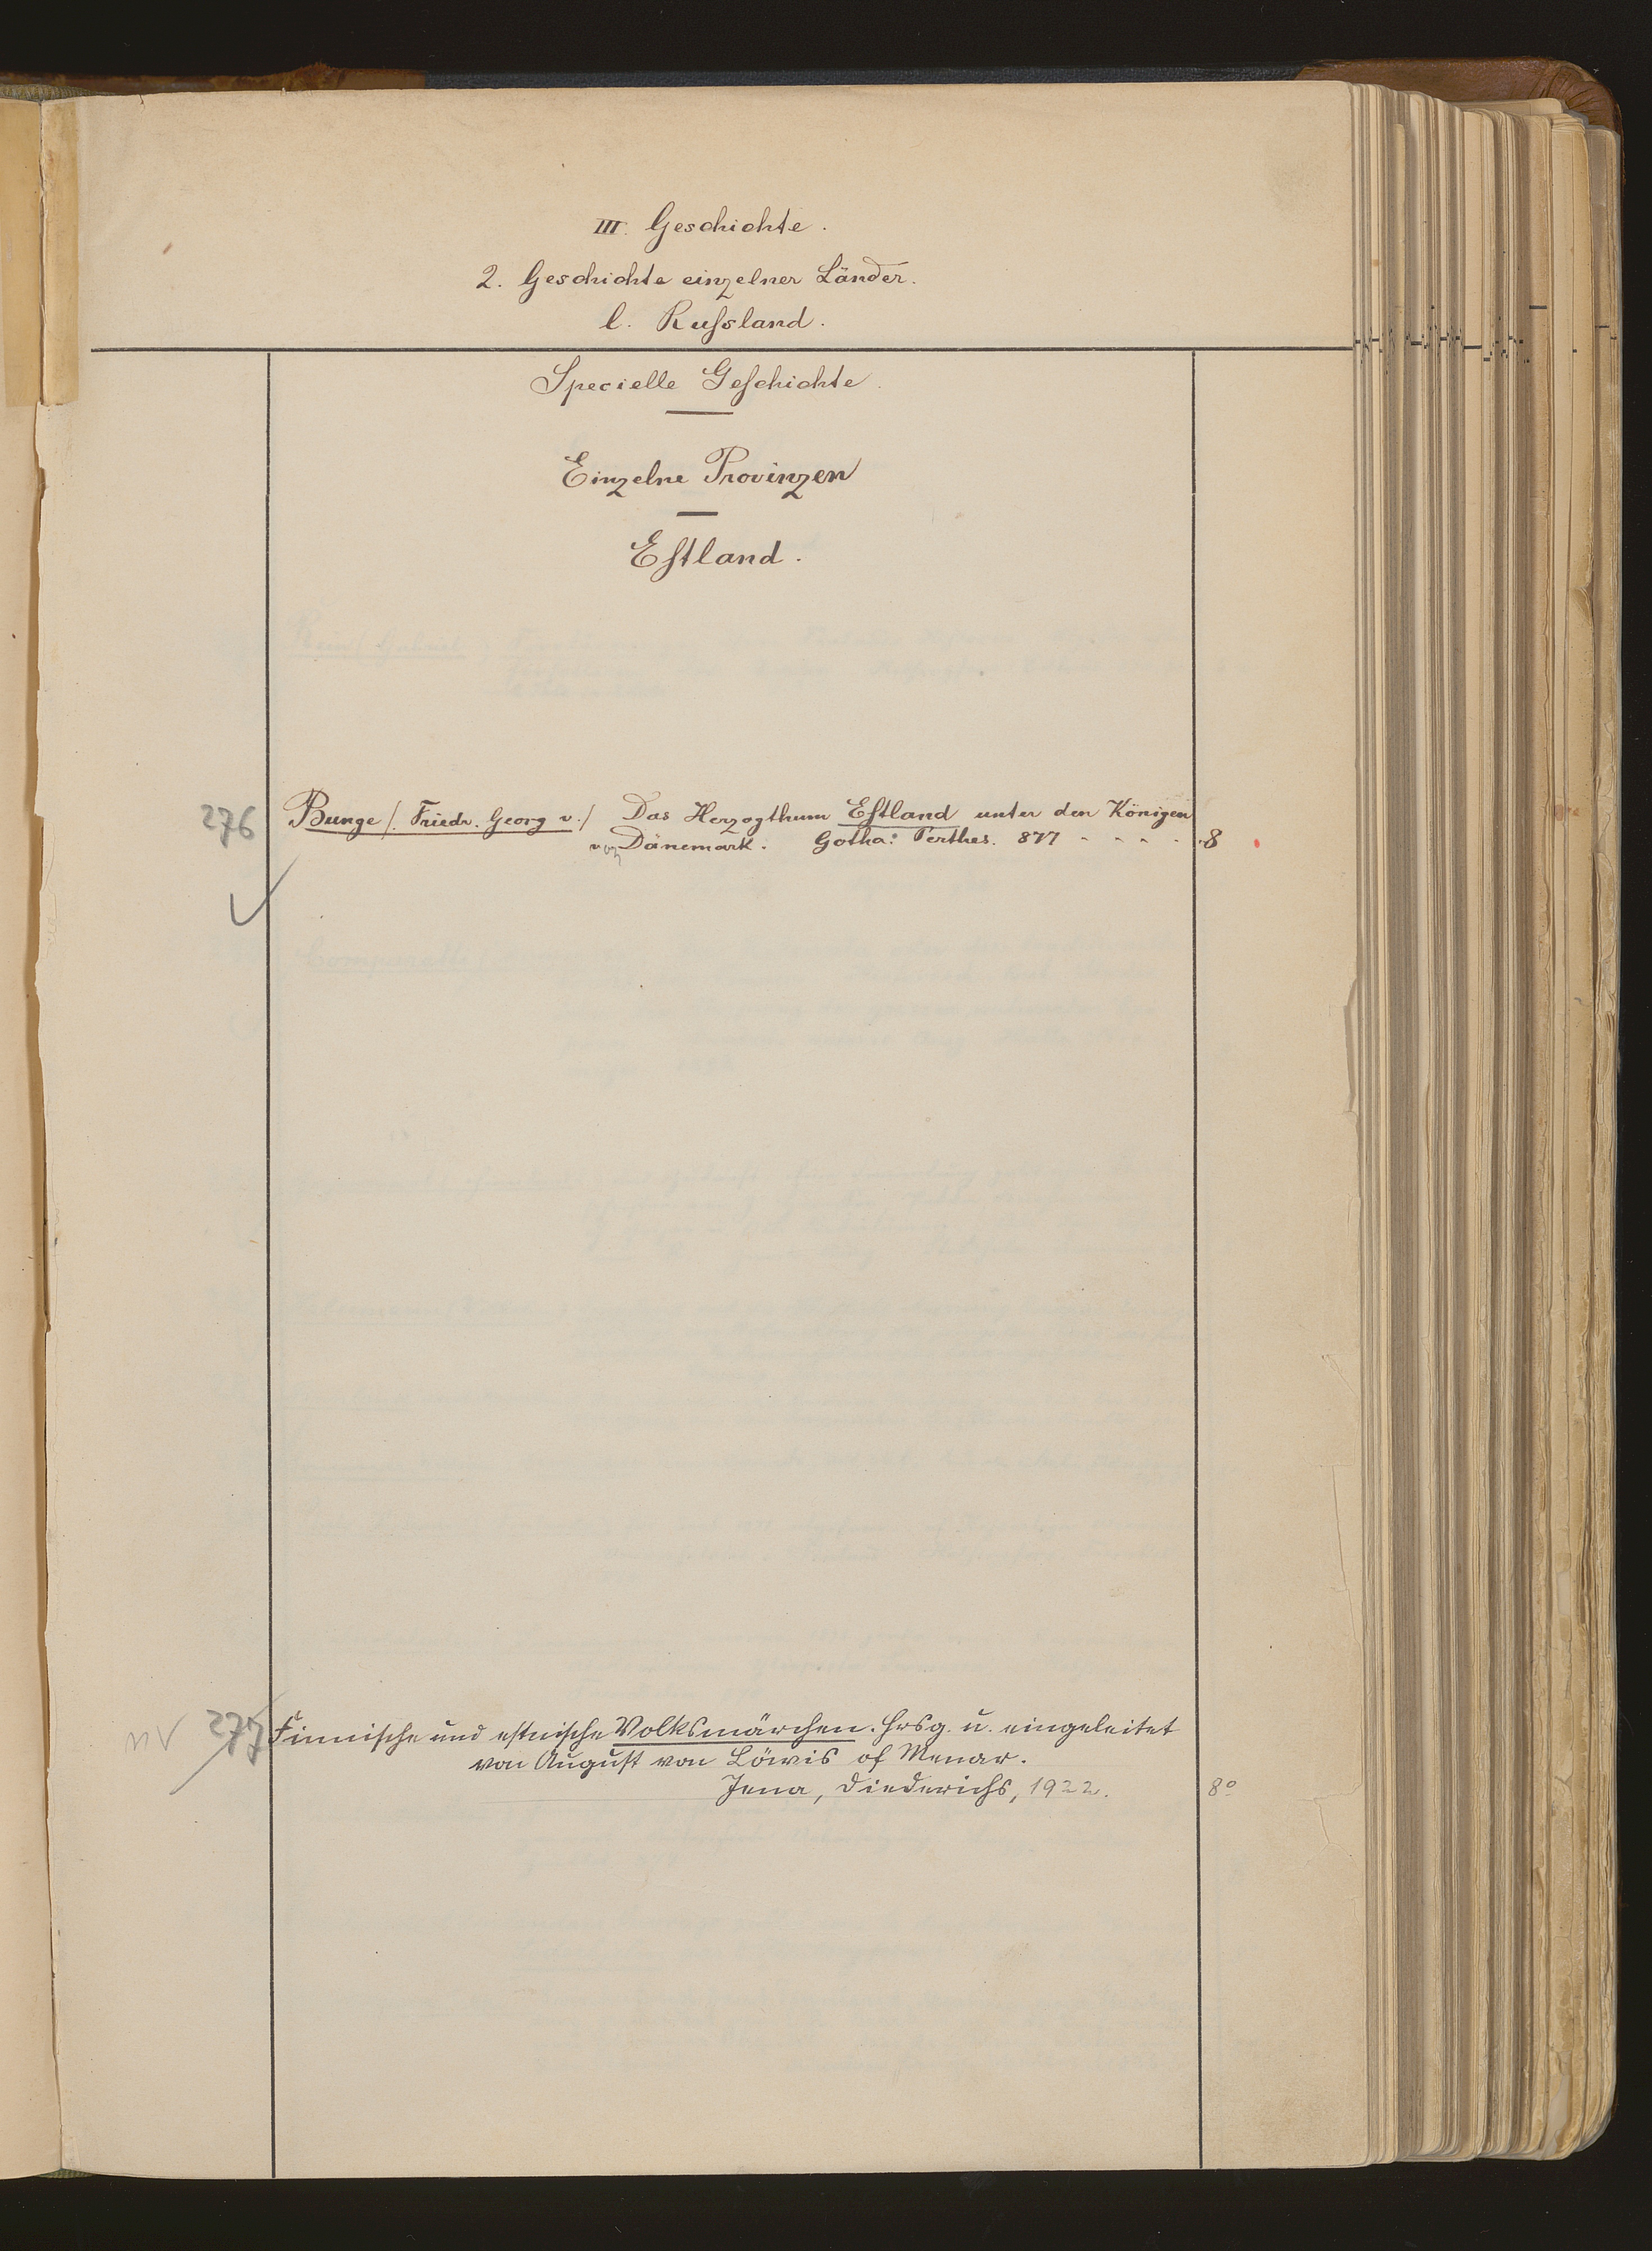 III. Geschichte.
2. Geschichte einzelner Länder.
l. Rußsland.
Specielle Geſchichte.
Einzelne Provinzen
Eſtland.
276 Bunge /. Friedr. Georg v./ Das Herzogthum Eſtland unter den Königen
von Dänemark. Gotha: Perthes. 877 - - - - 8
nv 277 Finnische und estnische Volksmärchen. Hrsg. u. eingeleitet
von August von Löwis of Menar.
Jena, Diederichs, 1922. 8º